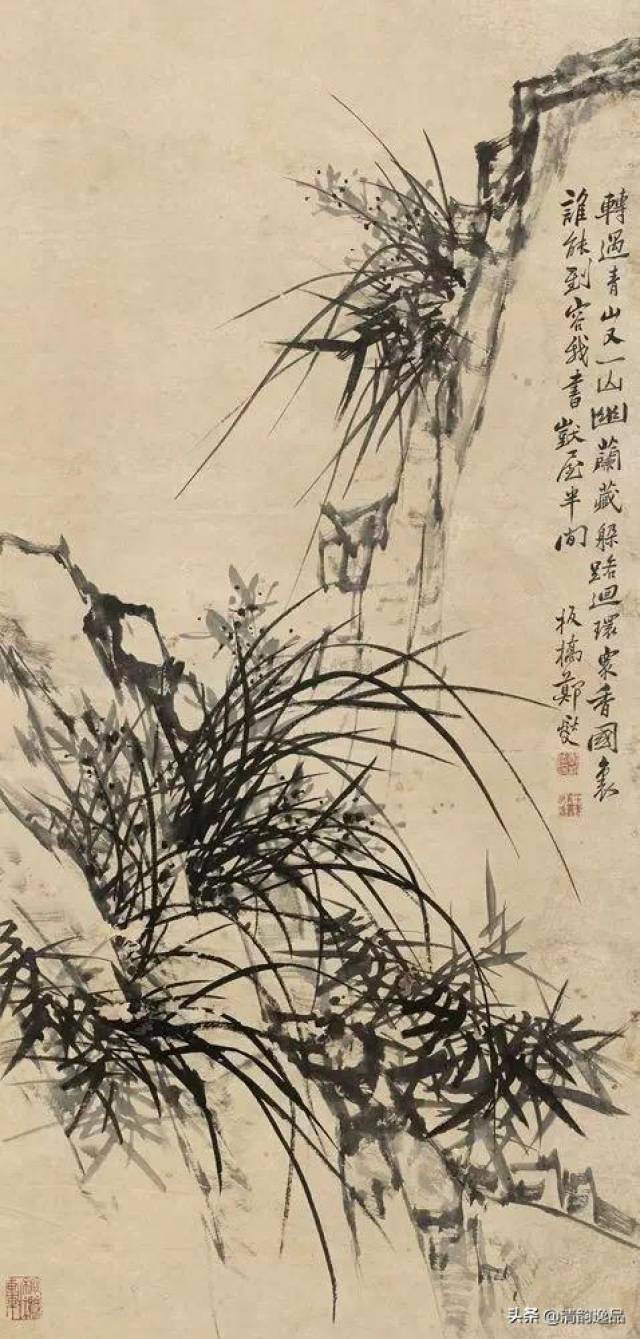 轉過青山又一山幽蘭藏躲路迴環衆香國裏
誰能到容我書獃屋半间
板橋鄭燮
头条 @清韵逸品